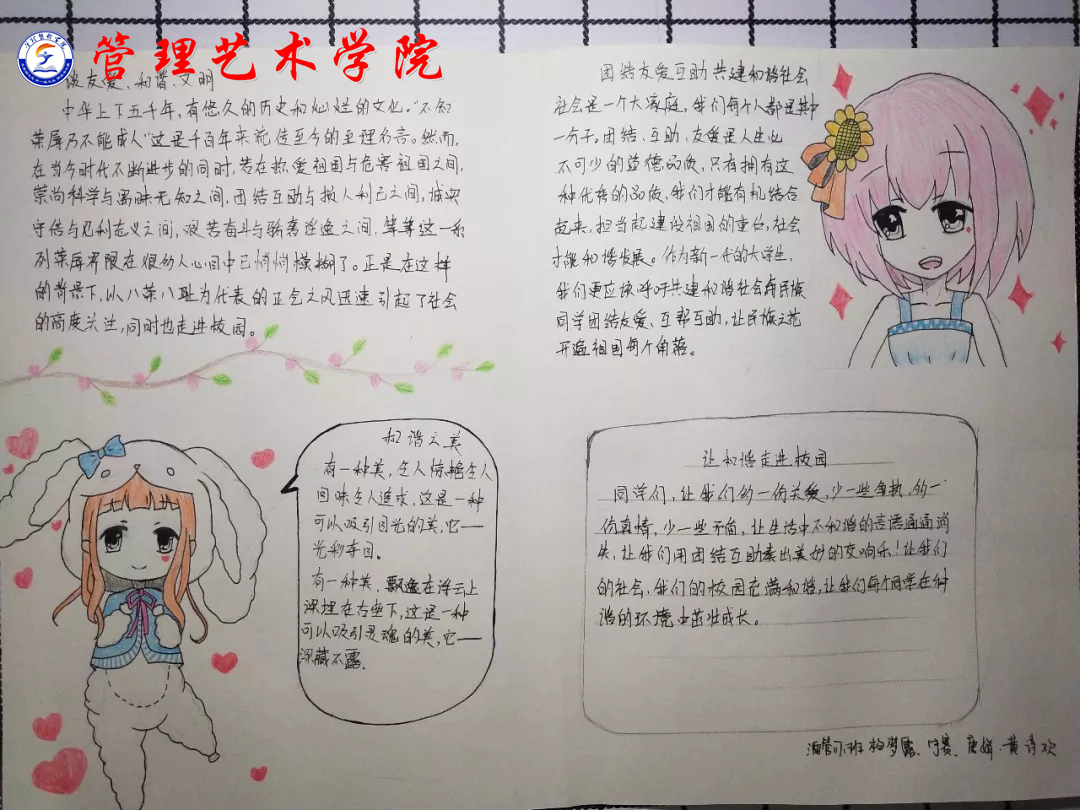 管理艺术学院
谈友爱、和谐、文明
中华上下五千年,有悠久的历史和灿烂的文化。"不知
荣辱乃不能成人"这是千百年来流传至今的至理名言。然而,
在当今时代不断进步的同时,若在热爱祖国与危害祖国之间,
崇尚科学与愚昧无知之间,团结互助与损人利己之间,诚实
守信与见利忘义之间,艰苦奋斗与骄奢淫逸之间,等等这一系
列荣辱界限在很多人心目中已悄悄模糊了。正是在这样
的背景下,以八荣八耻为代表的正气之风迅速引起了社会
的高度关注,同时也走进校园。
团结友爱互助共建和谐社会
社会是一个大家庭,我们每个人都是其中
一分子。团结、互助、友爱是人生必
不可少的道德品质,只有拥有这
种优秀的品质,我们才能有机结合
起来,担当起建设祖国的重任,社会
才能和谐发展。作为新一代的大学生,
我们更应该呼吁共建和谐社会各民族
同学团结友爱、互帮互助,让民族之花
开遍祖国每个角落。
和谐之美
有一种美,令人惊艳令人
回味令人追求,这是一种
可以吸引目光的美,它——
光彩夺目。
有一种美,飘逸在浮云上
深埋在石垒下,这是一种
可以吸引灵魂的美,它——
深藏不露.
让和谐走进校园
同学们,让我们多一份关爱,少一些自执,多一
份真情,少一些矛盾,让生活中不和谐的言语通通消
失,让我们用团结互助奏出美妙的交响乐!让我们
的社会,我们的校园充满和谐,让我们每个同学在和
谐的环境中茁壮成长。
班 梦露、 赛、唐娟、黄诗欢